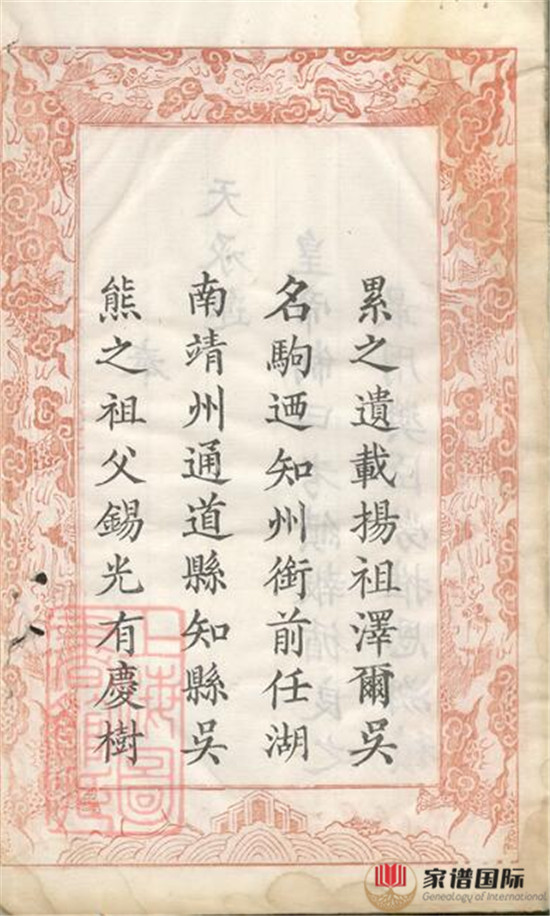 累之遺載揚祖澤爾吳
名駒迺知州銜前任湖
南靖州通道縣知縣吳
熊之祖父錫光有慶樹
家谱国际
Genealogy of International